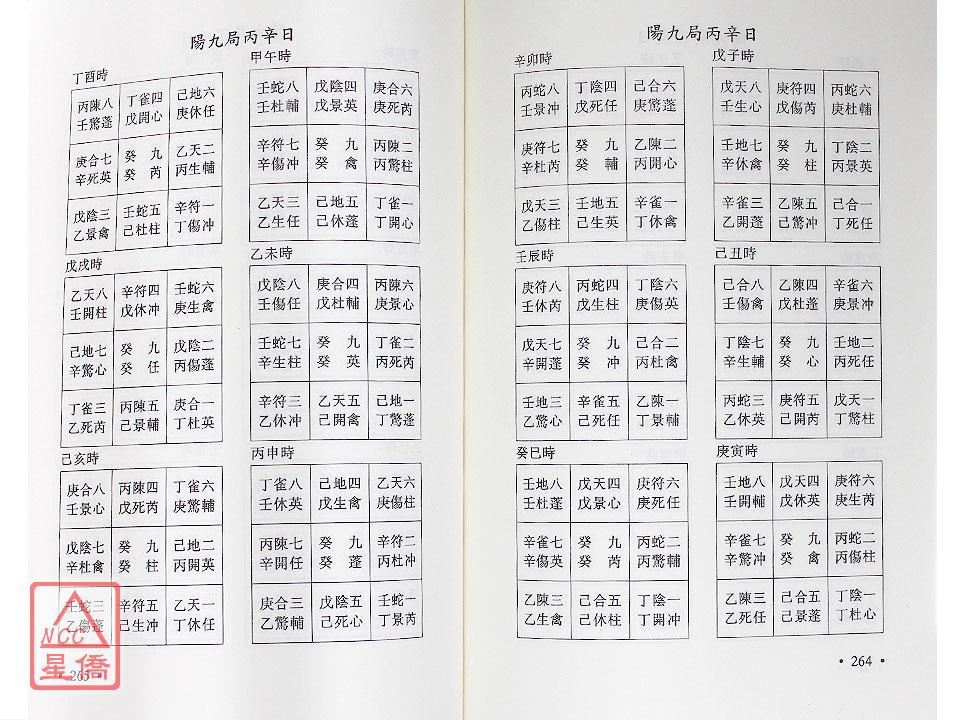 陽九局丙辛日
戊子時
戊天八 庚符四 丙蛇六
壬生心 戊傷芮 庚杜輔
壬地七 癸九 丁陰二
辛休禽 癸柱 丙景英
辛雀三 乙陳五 己合一
乙開蓬 己驚冲 丁死任
己丑時
己合八 乙陳四 辛雀六
壬傷禽 戊杜蓬 庚景冲
丁陰七 癸九 壬地二
辛生輔 癸心 丙死任
丙蛇三 庚符五 戊天一
乙休英 己開芮 丁驚柱
庚寅時
壬地八 戊天四 庚符六
壬開輔 戊休英 庚生芮
辛雀七 癸九 丙蛇二
辛驚冲 癸禽 丙傷柱
乙陳三 己合五 丁陰一
乙死任 己景蓬 丁杜心
辛卯時
丙蛇八 丁陰四 己合六
壬景冲 戊死任 庚驚蓬
庚符七 癸九 乙陳二
辛杜芮 癸輔 丙開心
戊天三 壬地五 辛雀一
乙傷柱 己生英 丁休禽
壬辰時
庚符八 丙蛇四 丁陰六
壬休芮 戊生柱 庚傷英
戊天七 癸九 己合二
辛開蓬 癸冲 丙杜禽
壬地三 辛雀五 乙陳一
乙驚心 己死任 丁景輔
癸巳時
壬地八 戊天四 庚符六
壬杜蓬 戊景心 庚死任
辛雀七 癸九 丙蛇二
辛傷英 癸芮 丙驚輔
乙陳三 己合五 丁陰一
乙生禽 己休柱 丁開冲
• 264 •
陽九局丙辛日
甲午時
壬蛇八 戊陰四 庚合六
壬杜輔 戊景英 庚死芮
辛符七 癸九 丙陳二
辛傷冲 癸禽 丙驚柱
乙天三 己地五 丁雀一
乙生任 己休蓬 丁開心
乙未時
戊陰八 庚合四 丙陳六
壬傷任 戊杜輔 庚景心
壬蛇七 癸九 丁雀二
辛生柱 癸英 丙死芮
辛符三 乙天五 己地一
乙休冲 己開禽 丁驚蓬
丙申時
丁雀八 己地四 乙天六
壬休英 戊生禽 庚傷柱
丙陳七 癸九 辛符二
辛開任 癸蓬 丙杜冲
庚合三 戊陰五 壬蛇一
乙驚輔 己死心 丁景芮
丁酉時
丙陳八 丁雀四 己地六
壬驚蓬 戊開心 庚休任
庚合七 癸九 乙天二
辛死英 癸芮 丙生輔
戊陰三 壬蛇五 辛符一
乙景禽 己杜柱 丁傷冲
戊戌時
乙天八 辛符四 壬蛇六
壬開柱 戊休冲 庚生禽
己地七 癸九 戊陰二
辛驚心 癸任 丙傷蓬
丁雀三 丙陳五 庚合一
乙死芮 己景輔 丁杜英
己亥時
庚合八 丙陳四 丁雀六
壬景心 戊死芮 庚驚輔
戊陰七 癸九 己地二
辛杜禽 癸柱 丙開英
壬蛇三 辛符五 乙天一
乙傷蓬 己生冲 丁休任
• 265 •
NCC
星僑